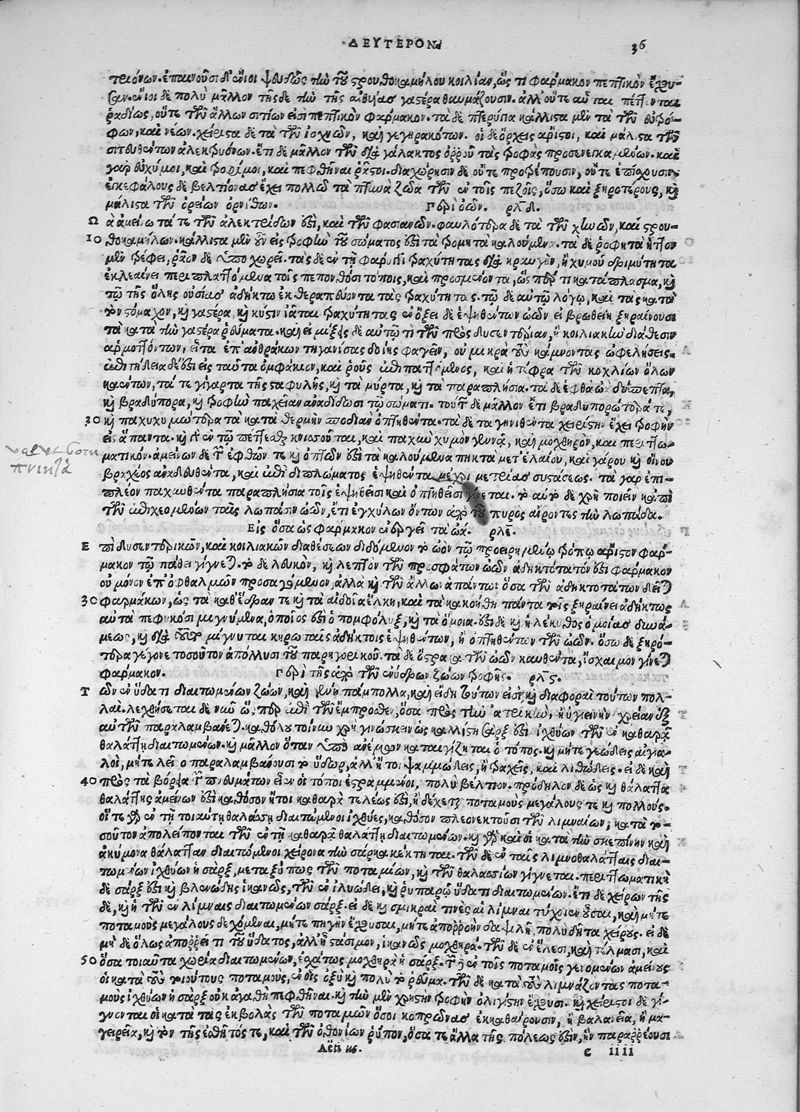 ΔΕΥΤΕΡΟΝ 36
ἐπαινοῦσι δ' ἔνιοι ψευδῶς τὴν τοῦ στρουθοκαμήλου κοιλίαν, ὥς τι φάρμακον πεπτικὸν ἔχου-
σαν. ἔνιοι δὲ πολὺ μᾶλλον τῆσδε τὴν τῆς αἰθυίας γαστέρα θαυμάζουσιν. ἀλλ' οὔτε αὗται πέττονται
ῥαδίως, οὔτε τῶν ἄλλων σιτίων εἰσὶ πεπτικὸν φάρμακον. τὰ δὲ πτερύγια κάλλιστα μὲν τὰ τῶν εὐτρό-
φων, καὶ νέων. χείριστα δὲ τὰ τῶν ἰσχνῶν, καὶ γεγηρακότων. οἱ δὲ ὄρχεις ἄριστοι, καὶ μάλιστα τῶν
σιτευθέντων ἀλεκτρυόνων. ἔτι δὲ μᾶλλον τῶν διὰ γάλακτος ὀρροῦ τὰς τροφὰς προσενεγκαμένων. καὶ
γὰρ εὔχυμοι, καὶ τρόφιμοι, καὶ πεφθῆναι ῥᾷστοι. διαχώρησιν δὲ οὔτε προτρέπουσιν, οὔτε ἐπέχουσιν.
ἐγκεφάλους δὲ βελτίονας ἔχει πολλῷ τὰ πτηνὰ ζῶα τῶν ἐν τοῖς πεζοῖς, ὅσω καὶ ξηροτέρους, καὶ
μάλιστα τῶν ὀρείων ὀρνίθων. Περὶ ὠῶν. ρλδ.
Ω ὰ ἀμείνω τά τε τῶν ἀλεκτορίδων ἐστὶ, καὶ τῶν φασιανῶν. φαυλότερα δὲ τὰ τῶν χηνῶν, καὶ στρου-
10 θοκαμήλων. κάλλιστα μὲν οὖν εἰς τροφὴν τοῦ σώματος ἐστὶ τὰ τρομητὰ καλούμενα. τὰ δὲ ῥοφητὰ ἧττον
μὲν τρέφει, ῥᾷον δὲ ὑποχωρεῖ. τὰς δὲ ἐν τῇ φάρυγγι τραχύτητας διὰ κραυγὴν, ἢ χυμοῦ δριμύτητα
ἐκλεαίνει περιπλαττόμενα τοῖς πεπονθόσι τόποις, καὶ προσμένοντα, ὥσπερ τι κατάπλασμα, καὶ
τῷ τῆς ὅλης οὐσίας ἀδήκτῳ ἐκθεραπεύοντα τὰς τραχύτητας. τῷ δὲ αὐτῷ λόγῳ, καὶ τὰς κατὰ
τὸν στόμαχον, καὶ γαστέρα, καὶ κύστιν ἰᾶται τραχύτητας. ἐν ὄξει δὲ ἑψηθέντων ὠῶν εἰ βρωθείη ξηραίνουσι
τὰ κατὰ τὴν γαστέρα ῥεύματα. καὶ εἰ μίξῃς δὲ αὐτῷ τι τῶν πρὸς δυσεντερίαν, ἢ κοιλιακὴν διάθεσιν
ἁρμοττόντων, εἶτα ἐπ' ἀνθράκων τηγανίσας δοίης φαγεῖν, οὐ μικρὰ τοὺς κάμνοντας ὠφελήσεις.
ἐπιτήδεια δὲ ἐστὶ εἰς ταῦτα ὀμφάκιον, καὶ ῥοῦς ἐπιπαττόμενος, καὶ ἡ τέφρα τῶν κοχλίων ὅλων
καέντων, τά τε γίγαρτα τῆς σταφυλῆς, καὶ τὰ μύρτα, καὶ τὰ παραπλήσια. τὰ δὲ ἑφθὰ ὠὰ δύσπεπτα,
καὶ βραδύπορα, καὶ τροφὴν παχεῖαν ἀναδίδωσι τῷ σώματι. τούτων δὲ μᾶλλον ἔτι βραδυπορώτερά τε,
20 καὶ παχυχυμώτερα τὰ κατὰ θερμὴν σποδιὰν ὀπτηθέντα. τὰ δὲ ταγηνισθέντα χειρίστην ἔχει τροφὴν
εἰς ἅπαντα. καὶ γὰρ ἐν τῷ πέττεσθαι κνισσοῦται, καὶ παχὺν χυμὸν γεννᾷ, καὶ μοχθηρὸν, καὶ περιττω-
ματικόν. ἀμείνων δὲ τῶν ἑφθῶν τε καὶ ὀπτῶν ἐστὶ τὰ καλούμενα πηκτὰ μετ' ἐλαίου, καὶ γάρου καὶ οἴνου
βραχέος ἀναδευθέντα, καὶ ἐπὶ διπλώματος ἑψηθέντα μέχρι μετρίας συστάσεως. τὰ γὰρ ἐπι-
πλέον παχυνθέντα παραπλήσια τοῖς ἑψηθεῖσι καὶ ὀπτηθεῖσι γίνεται. τὸ αὐτὸ δὲ χρὴ ποιεῖν καὶ ἐπὶ
τῶν ἐπιχεομένων ταῖς λοπάσιν ὠῶν, ἔτι ἐγχύλων ὄντων ἀπὸ τοῦ πυρὸς αἴροντες τὴν λοπάδα.
Εἰς ὅσα ὡς φάρμακον ἐνεργεῖ τὰ ὠά. ρλε.
Ε πὶ δυσεντερικῶν, καὶ κοιλιακῶν διαθέσεων διδόμενον τὸ ὠὸν τῷ προειρημένῳ τρόπῳ ἄριστον φάρ-
μακον τῷ πάθει γίγνεται. τὸ δὲ λευκὸν, καὶ λεπτὸν τῶν προσφάτων ὠῶν ἀδηκτότατόν ἐστι φάρμακον
οὐ μόνον ἐπ' ὀφθαλμῶν προσαγόμενον, ἀλλὰ καὶ τῶν ἄλλων ἁπάντων ὅσα τῶν ἀδηκτοτάτων δεῖται
30 φαρμάκων, ὡς τὰ καθ' ἕδραν τε καὶ τὰ αἰδοῖα ἕλκη, καὶ τὰ κακοήθη πάντα τοῖς ξηραίνειν ἀδήκτως
αὐτὰ πεφυκόσι μιγνύμενα, ὁποῖος ἐστὶ ὁ πομφόλυξ, καὶ τὰ ὅμοια. ἐστὶ δὲ καὶ ἡ λέκιθος ὁμοίας δυνά-
μεως, καὶ διὰ τοῦτο μίγνυται κηρωταῖς ἀδήκτοις ἑψηθέντων, ἢ ὀπτηθέντων τῶν ὠῶν. ὅσω δὲ ξηρό-
τερα γέγονε τοσοῦτον ἀπόλλυσι τοῦ παρηγορικοῦ. τὰ δὲ ὄστρακα τῶν ὠῶν καυθέντα, ἴσχαιμον γίνεται
φάρμακον. Περὶ τῆς ἀπὸ τῶν ἐνύδρων ζώων τροφῆς. ρλς.
Τ ῶν ἐν ὕδατι διαιτωμένων ζώων, καὶ γένη πάμπολλα, καὶ εἴδη τούτων εἰσὶ, καὶ διαφοραὶ τούτων πολ-
λαί. λεχθήσεται δὲ νῦν ὥσπερ ἐπὶ τῶν ἔμπροσθεν, ὅσα πρὸς τὴν ἰατρικὴν, ἢ ὑγιεινὴν χρείαν ἐξ
αὐτῶν παραλαμβάνεται. καθόλου τοίνυν χρὴ γινώσκειν ὡς καλλίστη σὰρξ ἐστὶ ἰχθύων τῶν ἐν καθαρᾷ
θαλάττῃ διαιτωμένων. καὶ μᾶλλον ὅταν ὑπὸ ἀνέμων καταιγίζηται ὁ τόπος. καὶ μήτε γεώδεις αἰγια-
λοὶ, μήτε λεῖοι παραλαμβάνουσι τὸ ὕδωρ, ἀλλ' ἤτοι ψαμμώδεις, ἢ τραχεῖς, καὶ λιθώδεις. εἰ δὲ καὶ
40 πρὸς τὰ βόρεια τῶν πνευμάτων εἶεν οἱ τόποι ἐστραμμένοι, πολὺ βέλτιον. πρόδηλον δὲ ὡς καὶ θάλαττα
θαλάττης ἀμείνων ἐστὶ καθόσον ἤτοι καθαρὰ τελέως ἐστὶ, ἢ δέχεται ποταμοὺς μεγάλους τε καὶ πολλούς.
οἵ τε γὰρ ἐν τῇ τοιαύτῃ θαλάσσῃ διαιτώμενοι ἰχθύες, καθόσον πλεονεκτοῦσι τῶν λιμναίων, κατὰ το-
σοῦτον ἀπολείπονται τῶν ἐν τῇ καθαρᾷ θαλάττῃ διαιτωμένων. καὶ γὰρ καὶ οἱ κατὰ τὴν σκεπεινὴν καὶ
ἀκύμονα θάλατταν διαιτώμενοι χείρονα τὴν σάρκα κέκτηται. τῶν δὲ ἐν ταῖς λιμνοθαλάτταις διαι-
τωμένων ἰχθύων ἡ σὰρξ, μεταξύ πως τῶν ποταμίων, καὶ τῶν θαλασσίων γίγνεται. περιττωματικὴ
δὲ σάρξ ἐστι καὶ βλεννώδης ἱκανῶς, τῶν ἐν ἰλυώδει, καὶ ῥυπαρῷ ὕδατι διαιτωμένων. ἔτι δὲ χείρων τῆς
δὲ, καὶ ἡ τῶν ἐν λίμναις διαιτωμένων σάρξ. εἰ δὲ καὶ σμικραί τινες αἱ λίμναι τύχοιεν οὖσαι, καὶ μήτε
ποταμοὺς μεγάλους δεχόμεναι, μήτε πηγὴν ἔχουσαι, μήτε ἀπορροὴν δαψιλῆ, πολὺ δήτα χείρους. εἰ δὲ
μὴ δὲ ὅλως ἀπορρεῖ τι τοῦ ὕδατος, ἀλλ' ἦ στάσιμον, ἱκανῶς μοχθηρά. τῶν δὲ ἐν ἕλεσι, καὶ τέλμασι, καὶ
50 ὅσα τοιαῦτα χωρία διαιτωμένων, ἐσχάτως μοχθηρὰ ἡ σάρξ. τῶν δὲ ἐν τοῖς ποταμοῖς γενομένων ἀμείνους
οἱ κατὰ τοὺς τοιούτους ποταμοὺς, ἐν οἷς ὀξὺ καὶ πολὺ τὸ ῥεῦμα. τῶν δὲ κατὰ τοὺς λιμνάζοντας ποτα-
μοὺς ἰχθύων ἡ σὰρξ οὐκ ἀγαθὴ πεφθῆναι. καὶ τὴν μὲν χρηστὴν τροφὴν ὀλιγίστην ἔχουσι. καὶ χείριστοι δὲ γί-
γνονται οἱ κατὰ τὰς ἐκβολὰς τῶν ποταμῶν ὅσοι κοπρῶνας ἐκκαθαίρουσιν, ἢ βαλανεῖα, ἢ μα-
γειρεῖα, καὶ τὸν τῆς ἐσθῆτός τε, καὶ τῶν ὀθονίων ῥύπον, ὅσα τε ἄλλα τῆς πόλεώς ἐστιν, ἣν παραρρέουσι
Ἀέτιος. e iiii